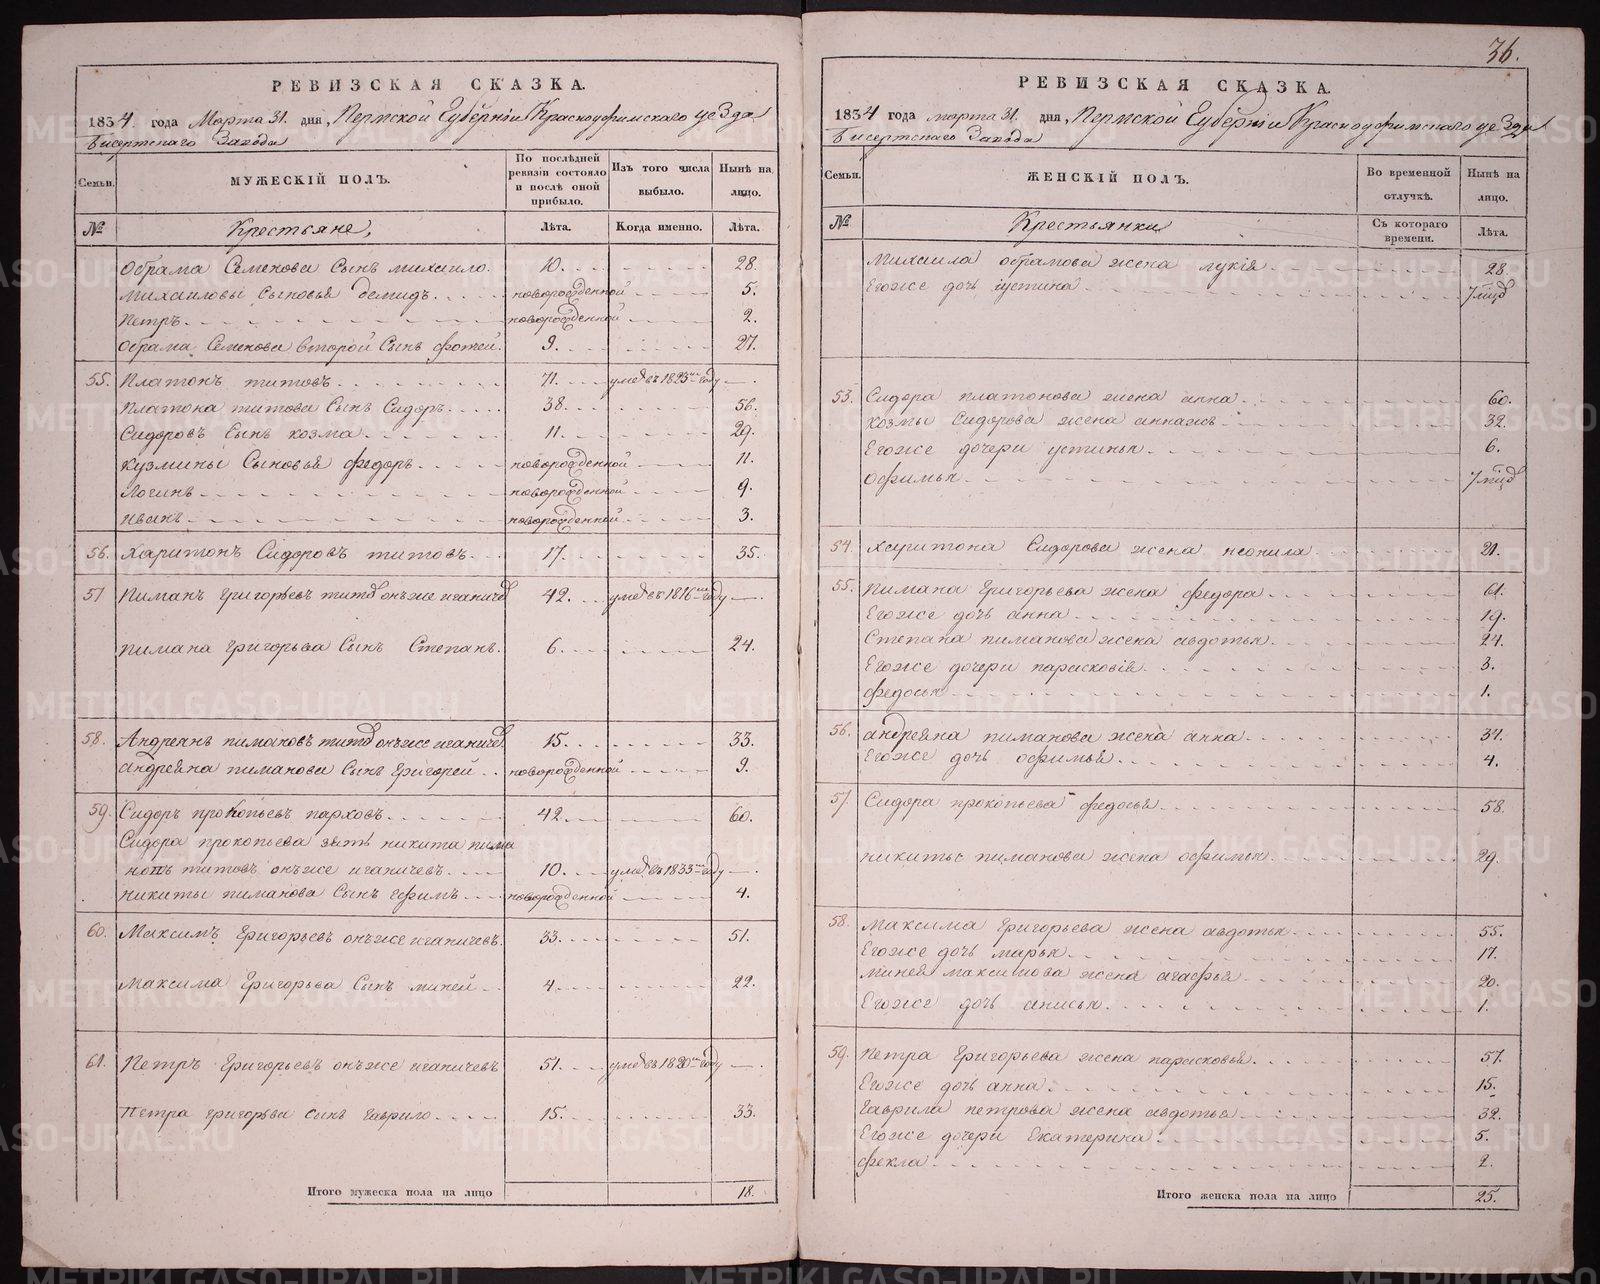 РЕВИЗСКАЯ СКАЗКА.
1834 года Марта 31. дня, Пермской Губерніи Красноуфимскаго уезда
Бисертскаго Завода
Семьи.
МУЖЕСКІЙ ПОЛЪ.
По послѣдней ревизіи состояло и послѣ оной прибыло.
Изъ того числа выбыло.
Нынѣ на лицо.
№
Крестьяне,
Лѣта.
Когда именно.
Лѣта.
Обрама Семенова Сынъ михаило. 10. 28.
Михаиловы Сыновья демидъ. новорожденной 5.
Петръ. новорожденной 2.
Обрама Семенова второй Сынъ фотей. 9. 27.
55. Платонъ титовъ. 71. умре въ 1823м году —.
Платона титова Сынъ Сидоръ. 38. 56.
Сидоровъ Сынъ козма. 11. 29.
Кузмины Сыновья федоръ. новорожденной 11.
Логинъ. новорожденной 9.
Иванъ. новорожденной 3.
56. Харитонъ Сидоровъ титовъ. 17. 35.
57 Пиманъ григорьевъ титовъ онъже иганичевъ 42. умре въ 1816м году —.
пимана григорьва Сынъ Степанъ. 6. 24.
58. Андреянъ пимановъ титовъ онъже иганичев. 15. 33.
андреяна пиманова Сынъ Григорей новорожденной 9.
59. Сидоръ прокопьевъ парховъ. 42. 60.
Сидора прокопьева зять никита пима
новъ титовъ онъже иганичевъ. 10. умре въ 1833м году —.
никиты пиманова Сынъ Ефимъ новорожденной 4.
60. Максимъ Григорьевъ онъже иганичевъ. 33. 51.
Максима Григорьва Сынъ миней. 4. 22.
61. Петръ Григорьевъ онъже иганичевъ 51. умре въ 1820м году —.
Петра григорьва сынъ Гаврило. 15. 33.
Итого мужеска пола на лицо 18.
36.
РЕВИЗСКАЯ СКАЗКА.
1834 года марта 31. дня, Пермской Губерніи Красноуфимскаго уезда
Бисертскаго Завода
Семьи.
ЖЕНСКІЙ ПОЛЪ.
Во временной отлучкѣ.
Нынѣ на лицо.
№
Крестьянки
Съ котораго времени.
Лѣта.
Михаила обрамова жена лукія. 28.
Егоже дочь устина. 7 мцов
53. Сидора платонова жена анна. 60.
козмы Сидорова жена 32.
Егоже дочери устинья. 6.
Офимья. 7 мцов
54. Харитона Сидорова жена неонила. 21.
55. Пимана Григорьева жена федора. 61.
Егоже дочь анна. 19.
Степана пиманова жена авдотья. 24.
Егоже дочери парасковія. 3.
федосья. 1.
56. андреяна пиманова жена анна. 31.
Егоже дочь офимья. 4.
57. Сидора прокопьева федосья. 58.
никиты пиманова жена офимья. 29.
58. Максима Григорьева жена авдотья. 55.
Егоже дочь марья. 17.
минея максимова жена агафья. 20.
Егоже дочь анисья. 1.
59. Петра Григорьева жена парасковья. 57.
Егоже дочь анна. 15.
Гаврила петрова жена авдотья. 32.
Егоже дочери Екатерина. 5.
фекла. 2.
Итого женска пола на лицо 25.
METRIKI.GASO-URAL.RU